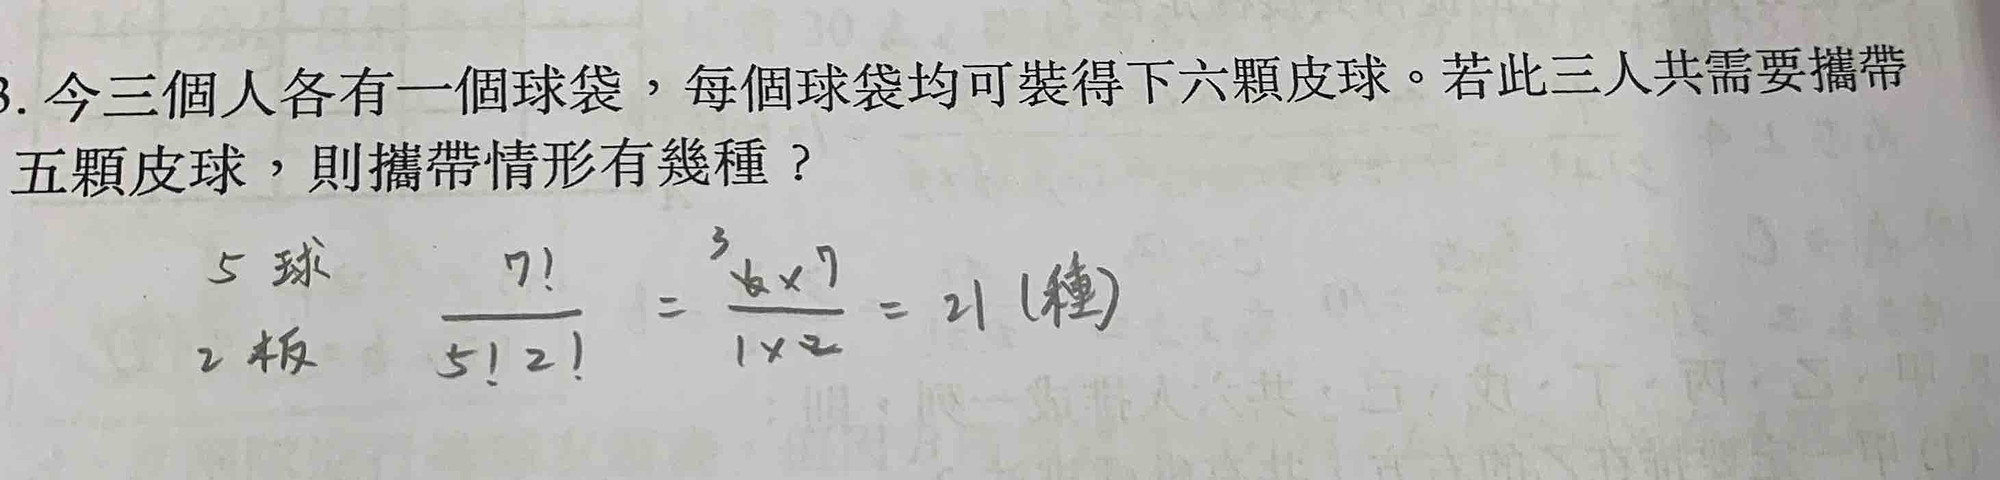 3. 今三個人各有一個球袋，每個球袋均可裝得下六顆皮球。若此三人共需要攜帶
五顆皮球，則攜帶情形有幾種？
5 球
2 板
7! / 5! 2! = 3 6×7 / 1×2 = 21 (種)